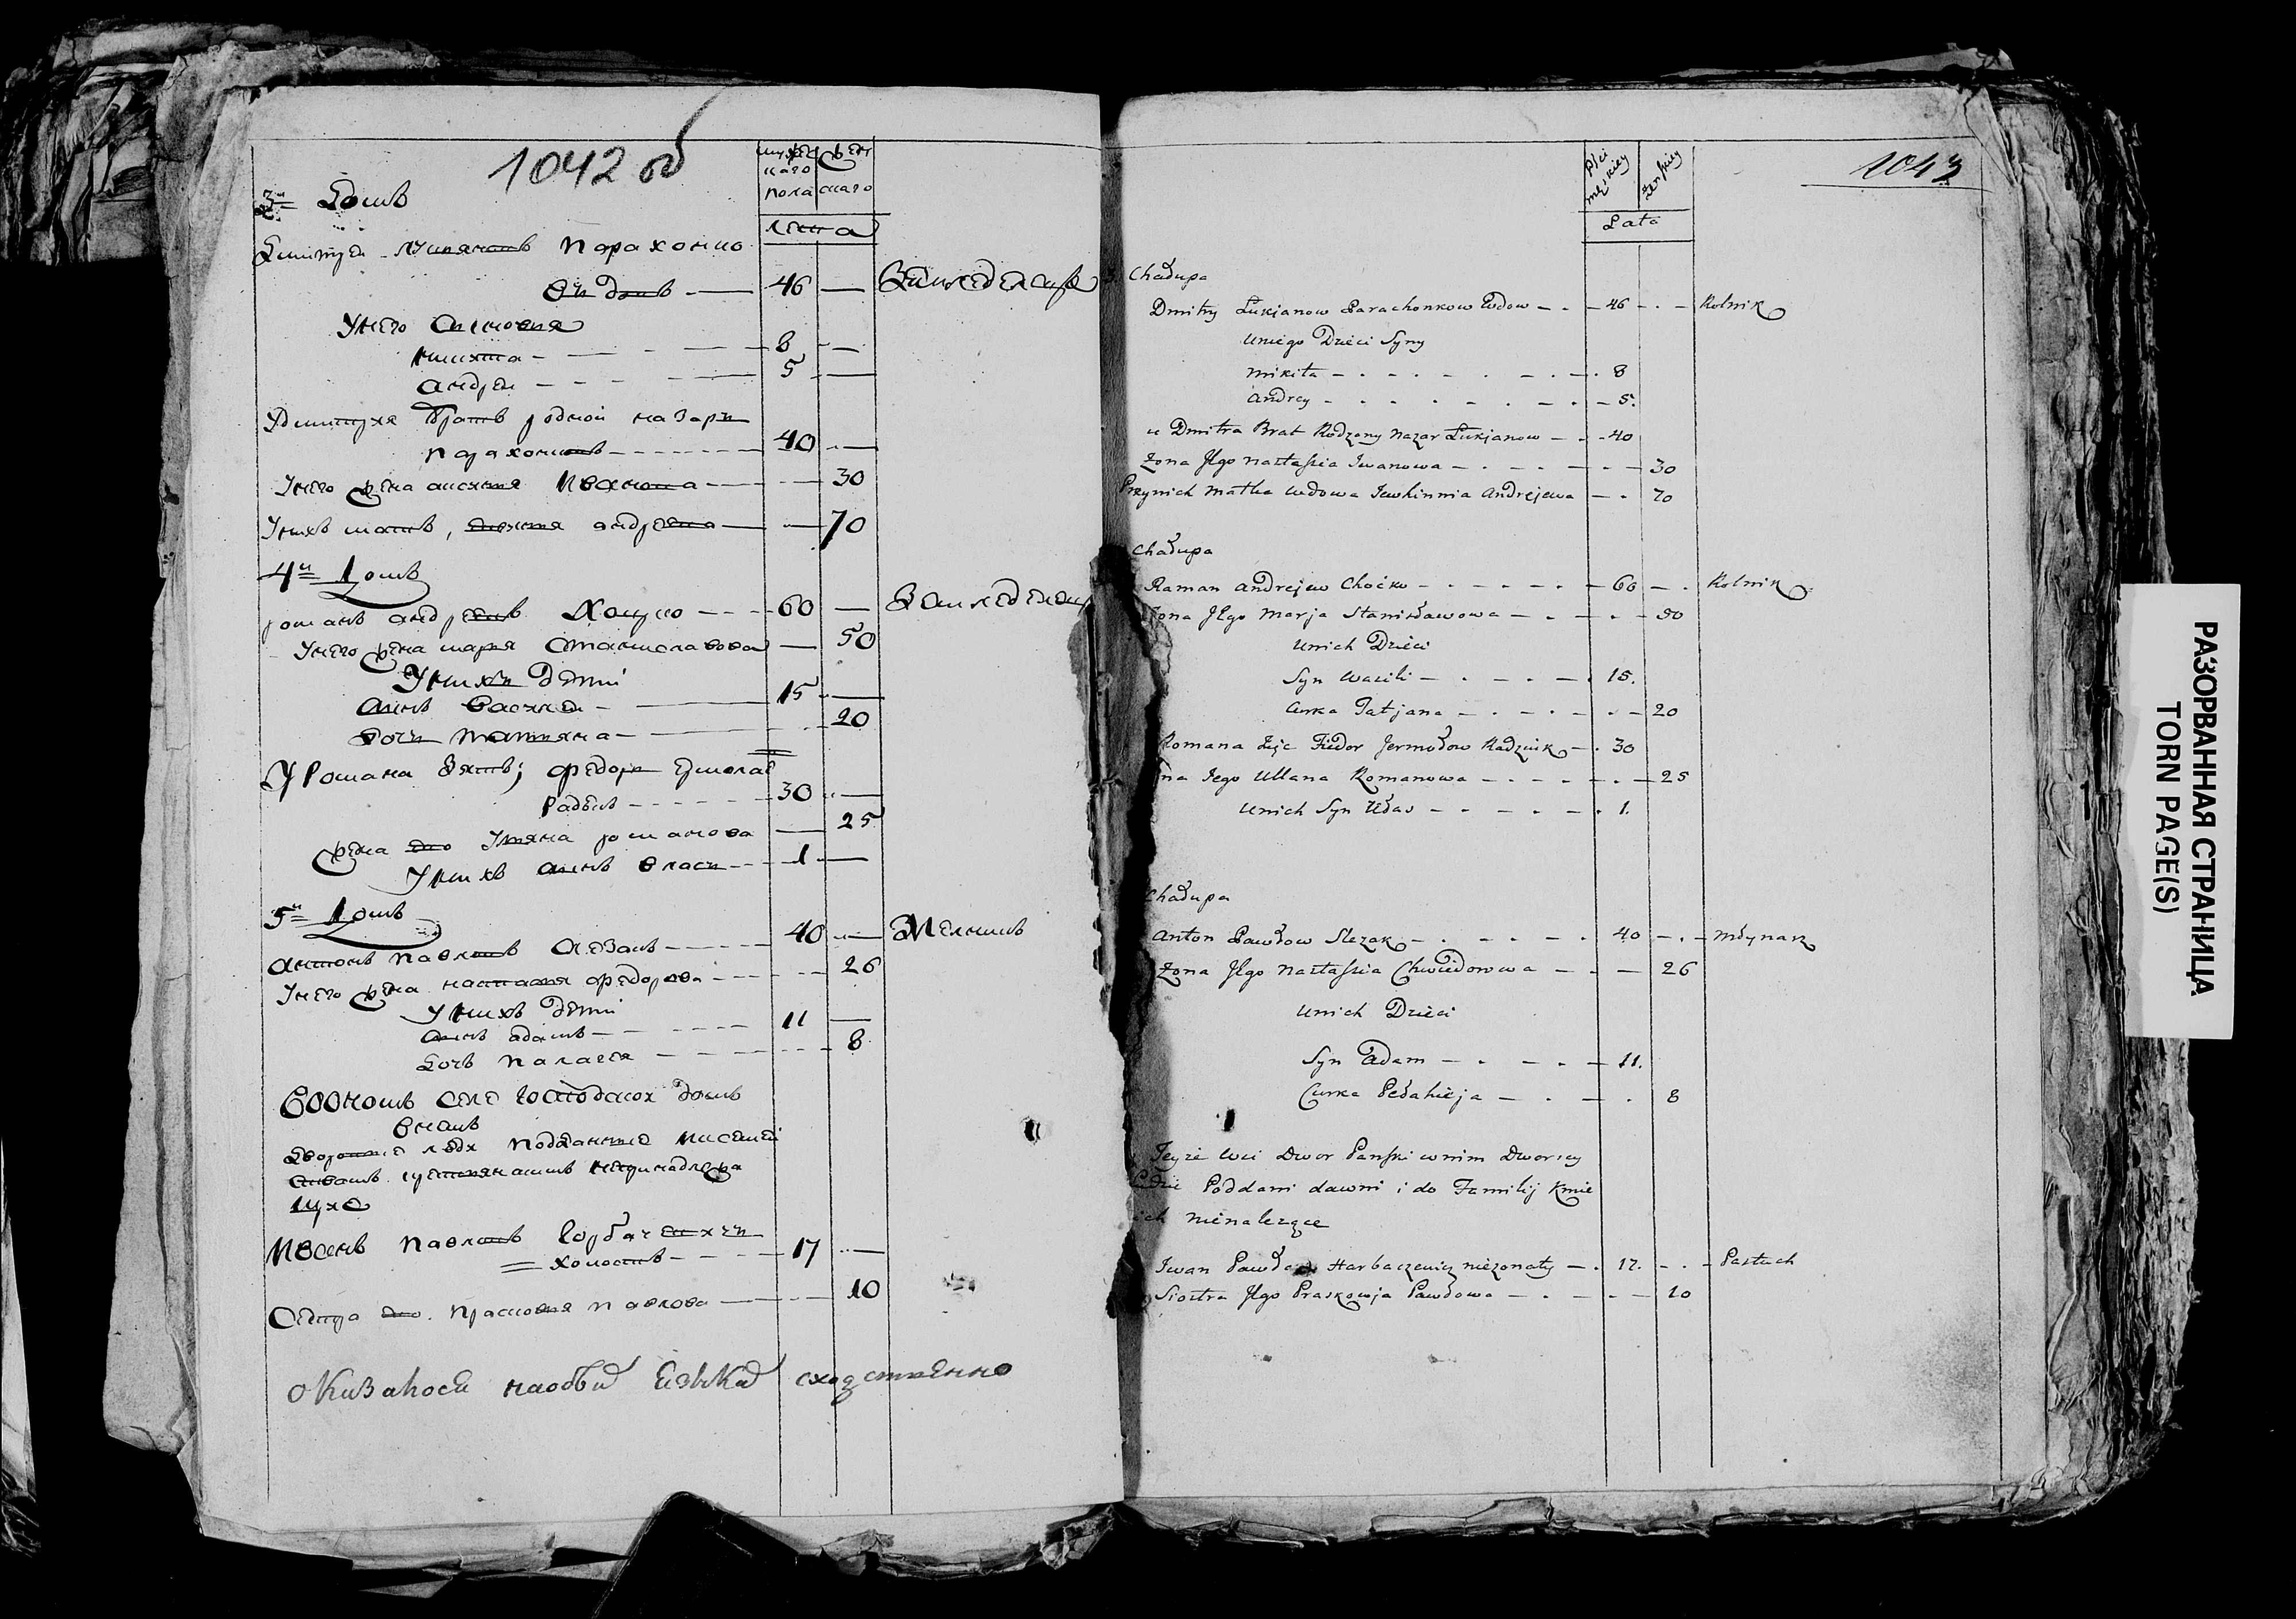 1042 об
мужес
каго
пола
жен
скаго
лета
3й Домъ
Дмитрей Лукяновъ Парахонко
вдовъ — 46 — Земледелецъ
У него сыновья
Микита — 8 —
Андрей — 5 —
У Дмитрея братъ родной Назаръ
Парахонковъ — 40 —
У него жена Настасия Иванова — 30
У нихъ мать, Андреева — 70
4й Домъ
Романъ Андреевъ Хоцко — 60 — Земледелецъ
У него жена Марья Станиславова — 50
У нихъ дети
Сынъ Василей — 15 —
Дочь Татьяна — 20
У Романа зять, Федоръ Ермолаев
Радзикъ — 30 —
Жена его Уляна Романова — 25
У нихъ сынъ Власъ — 1 —
5й Домъ
Антонъ Павловъ Слезакъ — 40 — Мельникъ
У него жена Настасия Федорова — 26
У нихъ дети
Сынъ Адамъ — 11 —
Дочь Палагея — 8
В ономъ селе господской домъ
в немъ
Дворовые люди подданные
крестьянамъ непринадлежа
щие
Иванъ Павловъ Горбачевичъ
холостъ — 17 —
Сестра его Прасковья Павлова — 10
оказалось на обеи езыка сходственно
1043
Płci
męskiey
żeńskiey
Lata
3. Chałupa
Dmitry Łukjanow Parachonkow Wdow — 46 — Rolnik
u niego Dzieci Syny
Mikita — 8
Andrey — 5.
u Dmitra Brat Rodzony Nazar Łukjanow — 40
Żona Jego Nastassia Iwanowa — 30
Przynich Matka Wdowa Jewhinnia Andrejewa — 70
Chałupa
Raman Andrejew Choćko — 60 — Rolnik
Żona Jego Marja Stanisławowa — 50
Unich Dzieci
Syn Wasili — 15.
Curka Tatjana — 20
Romana Zięć Fiedor Jermołow Radziuk — 30
na Jego Ullana Romanowa — 25
Unich Syn Ułas — 1.
Chałupa
Anton Pawłow Slezak — 40 — Młynarz
Żona Jego Nastassia Chwiedorowa — 26
Unich Dzieci
Syn Adam — 11.
Curka Pełahieja — 8
Teyże Wsi Dwor Pański w nim Dworscy
Ludzie Poddani dawni i do Familij Kmie
ich nienależące
Iwan Pawłow Harbaczewicz nieżonaty — 17. — Pastuch
Siostra Jego Praskowja Pawłowa — 10
РАЗОРВАННАЯ СТРАНИЦА
TORN PAGE(S)